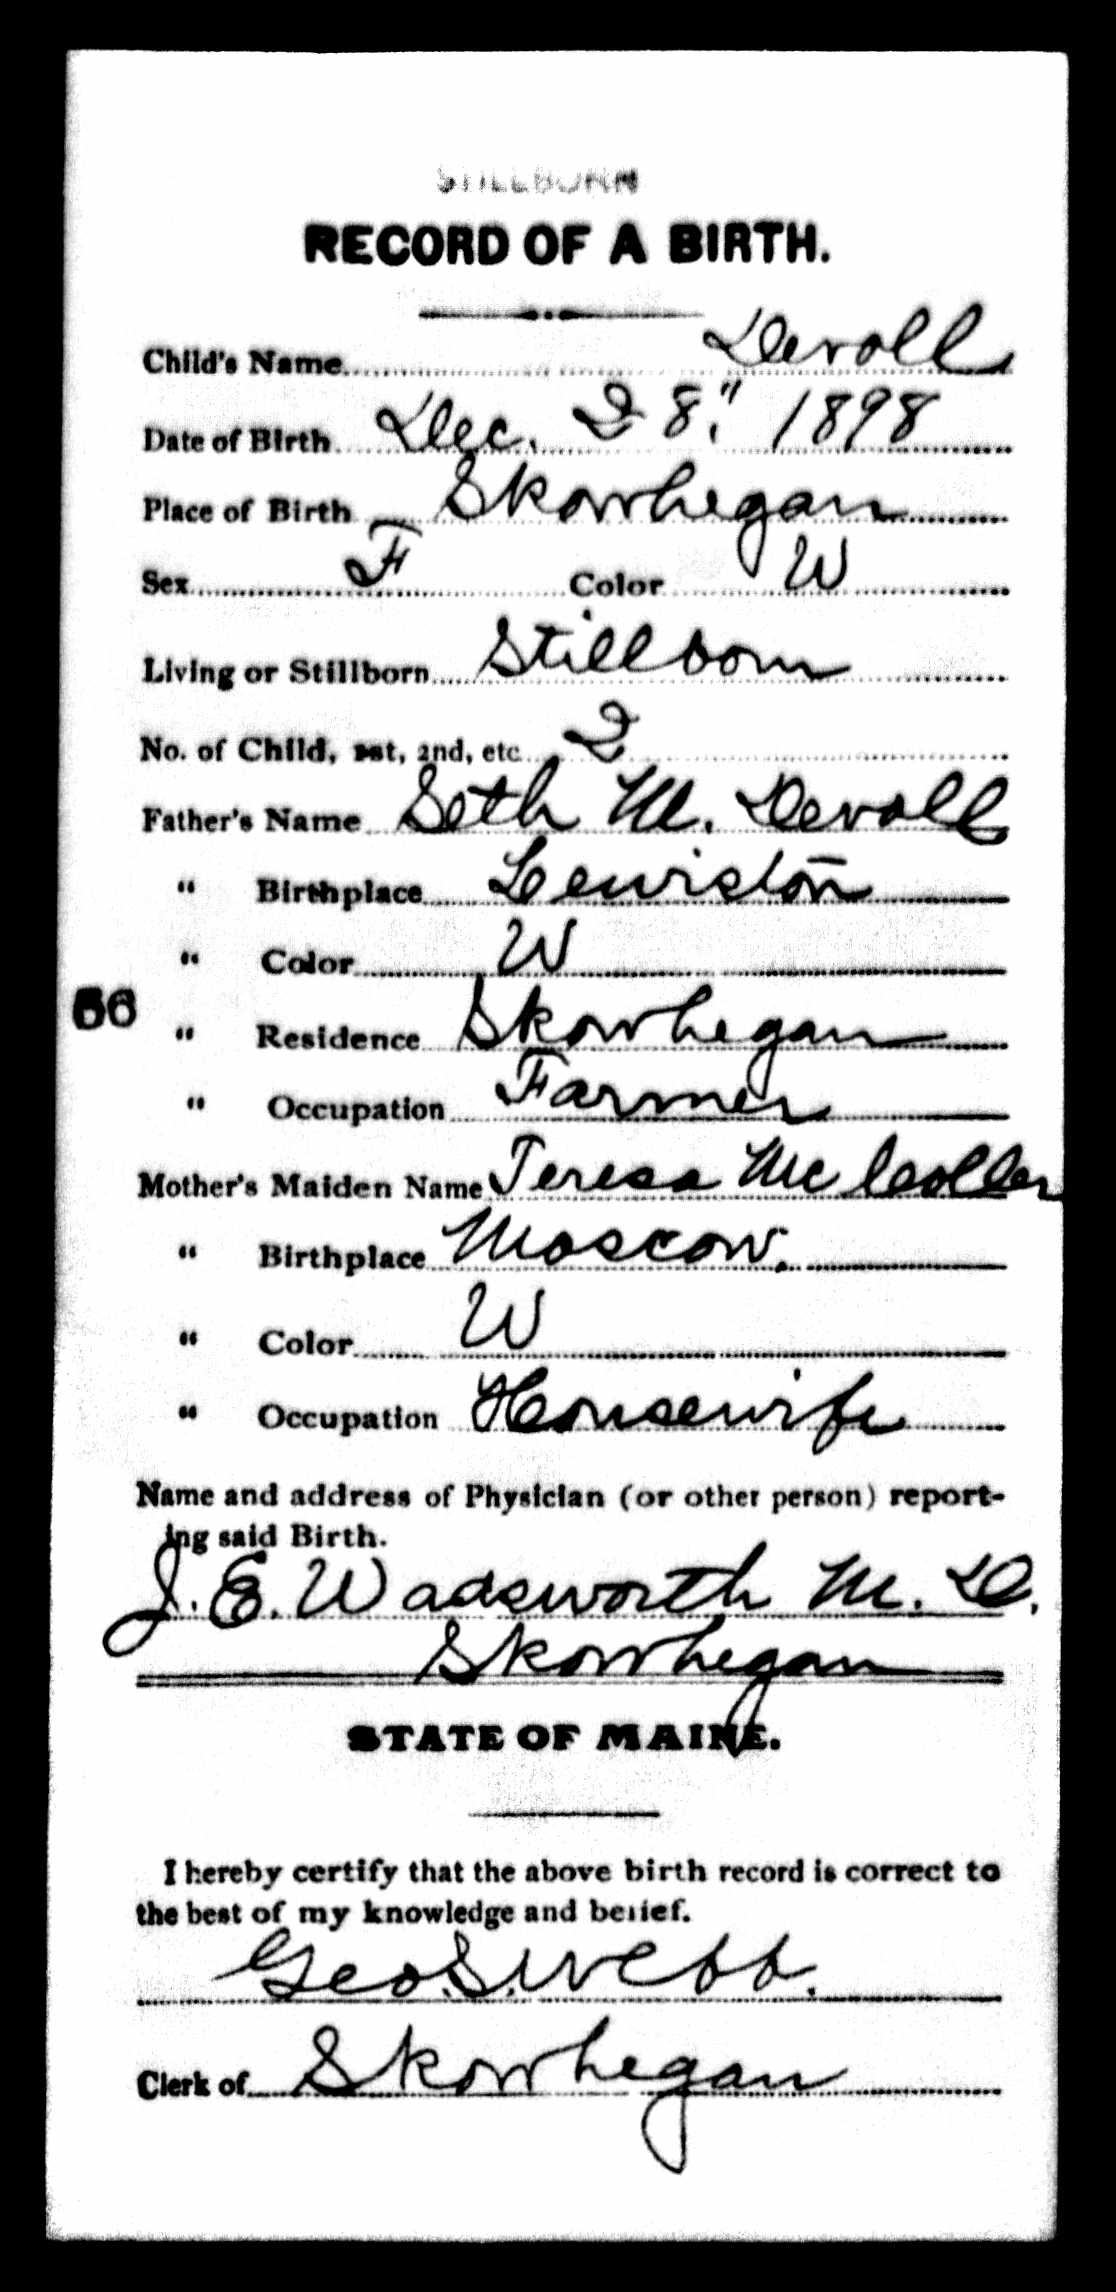 STILLBORN
RECORD OF A BIRTH.
Child's Name Devoll
Date of Birth Dec. 28," 1898
Place of Birth Skowhegan
Sex F Color W
Living or Stillborn Stillborn
No. of Child, 1st, 2nd, etc. 2
Father's Name Seth M. Devoll
" Birthplace Lewiston
" Color W
66
" Residence Skowhegan
" Occupation Farmer
Mother's Maiden Name Teresa Mc
" Birthplace Moscow.
" Color W
" Occupation Housewife
Name and address of Physician (or other person) report-
ing said Birth.
J. E. Wadsworth M. D.
Skowhegan
STATE OF MAINE.
I hereby certify that the above birth record is correct to
the best of my knowledge and belief.
Geo. S. Webb.
Clerk of Skowhegan